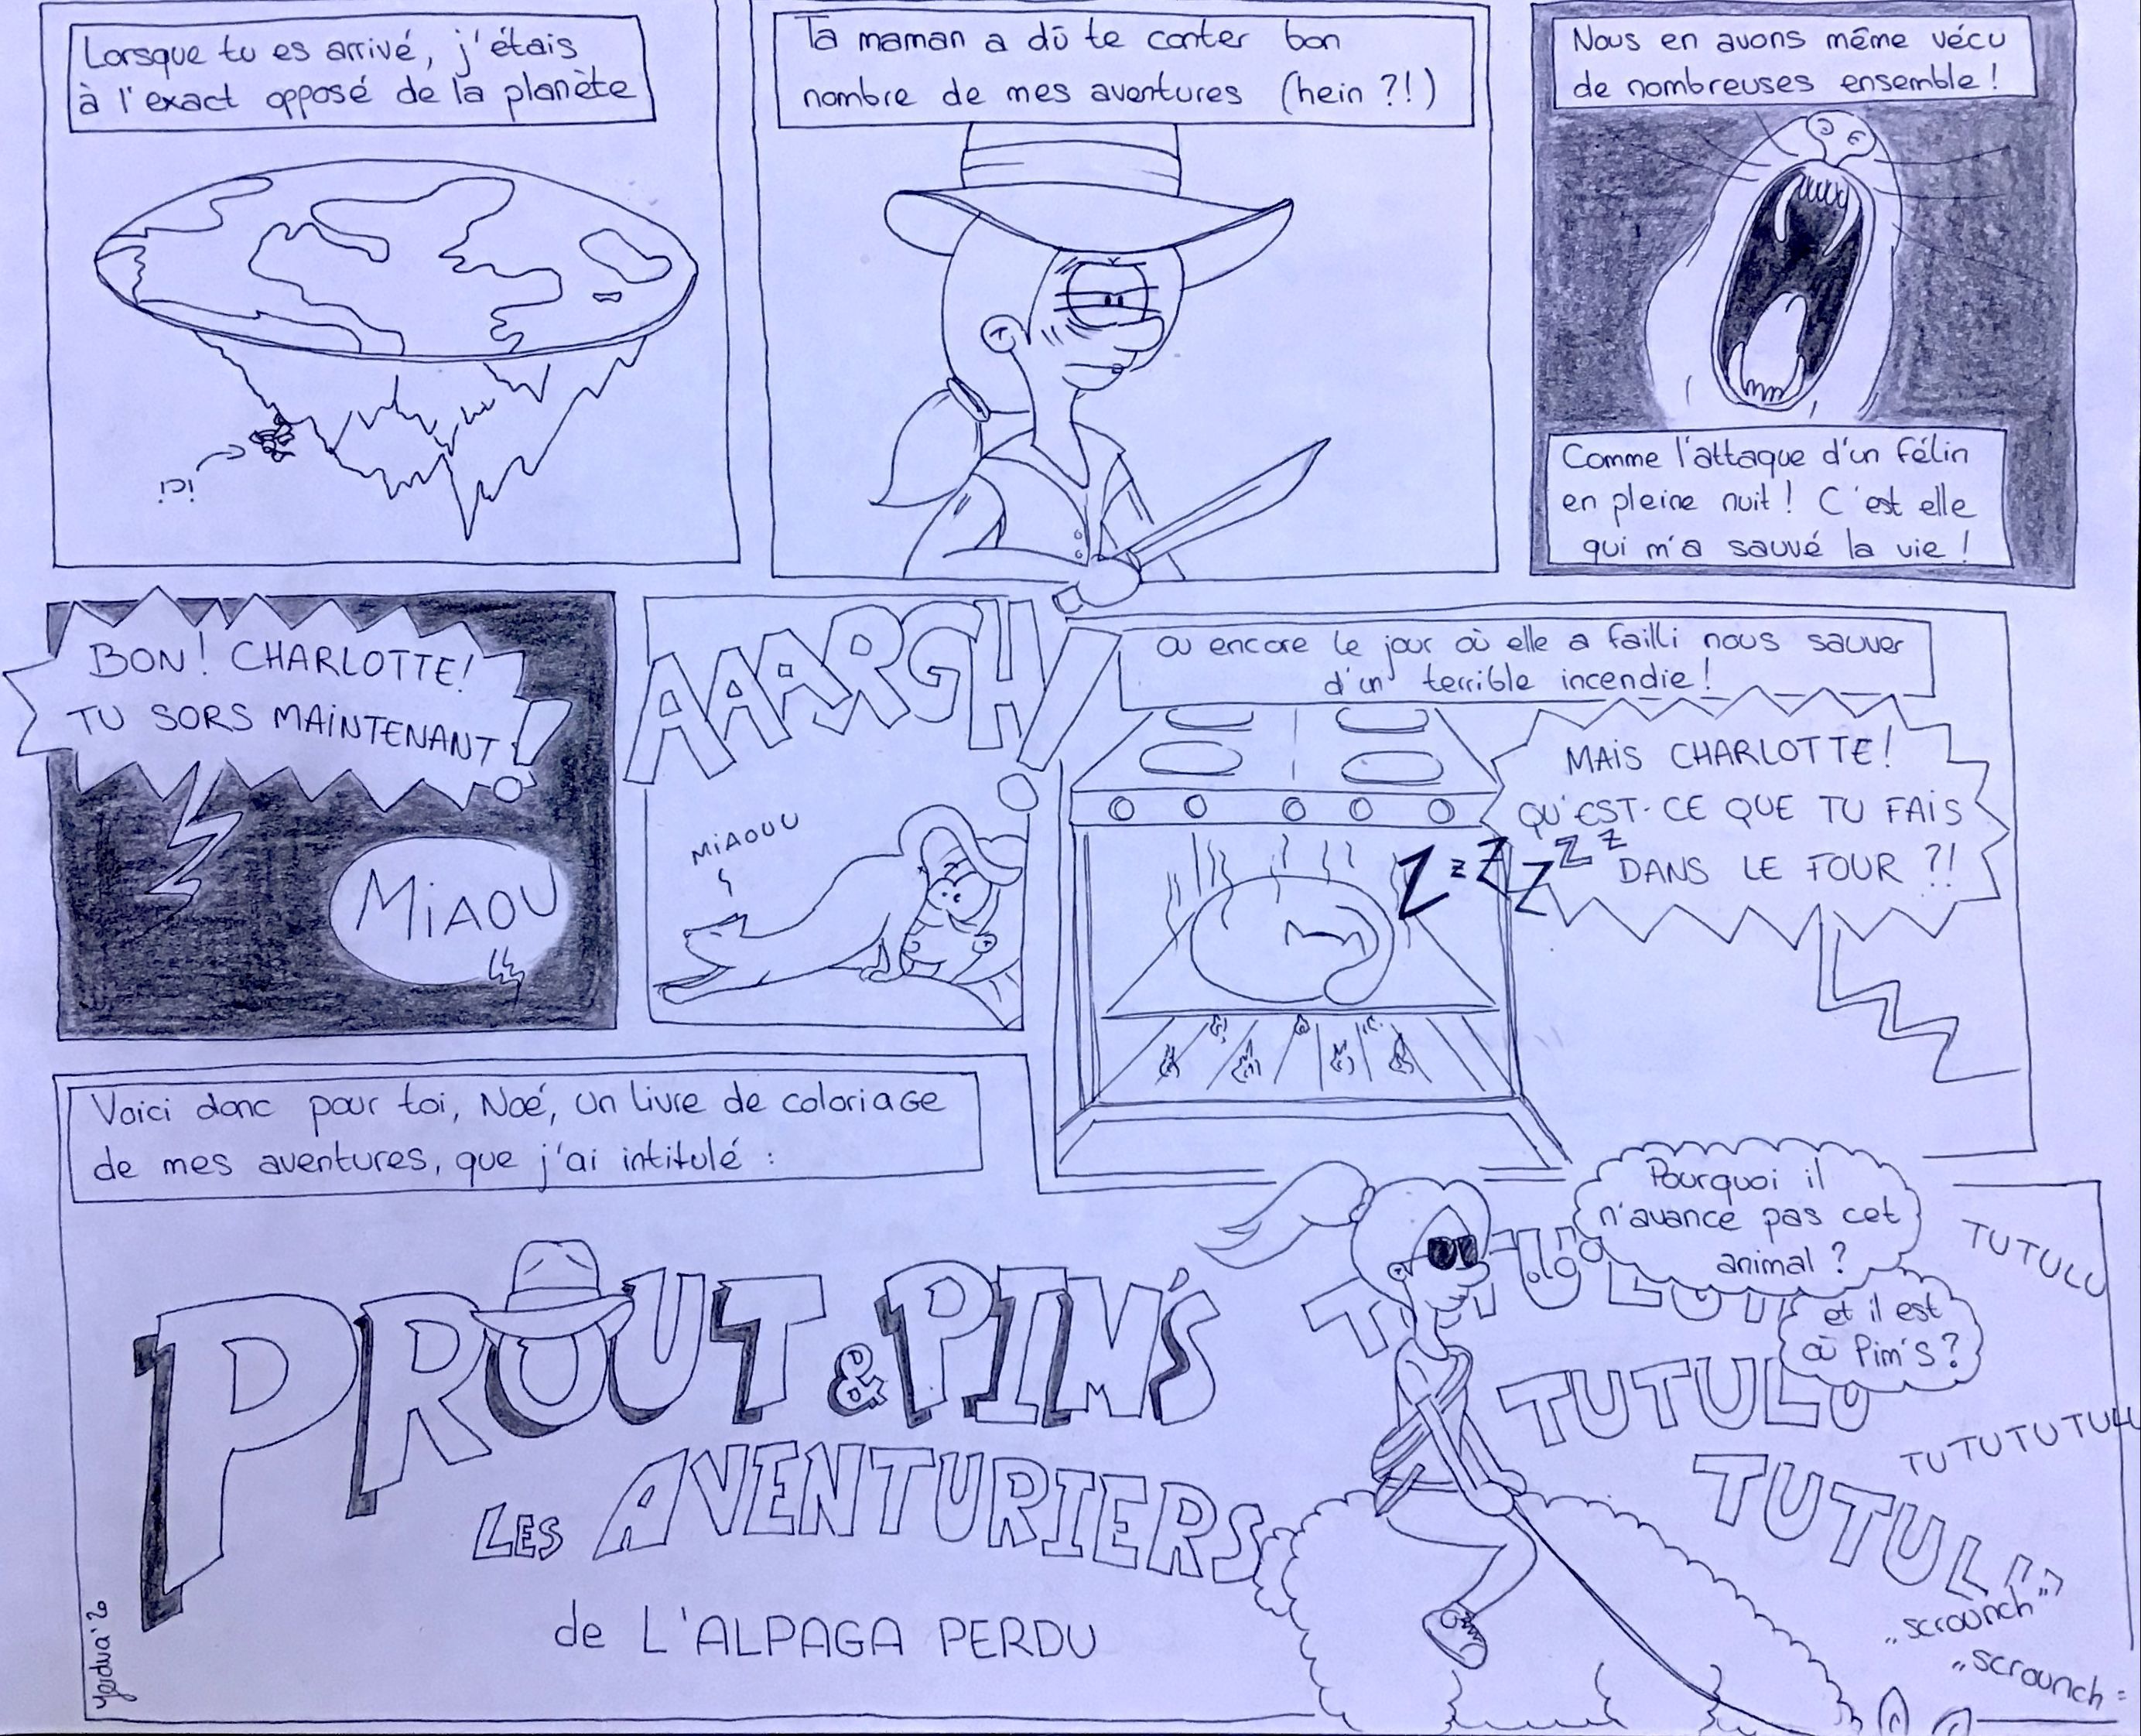 Lorsque tu es arrivé, j'étais
à l'exact opposé de la planète
ici
Ta maman a dû te conter bon
nombre de mes aventures (hein ?!)
Nous en avons même vécu
de nombreuses ensemble !
Comme l'attaque d'un félin
en pleine nuit ! C'est elle
qui m'a sauvé la vie !
BON! CHARLOTTE!
TU SORS MAINTENANT!
MIAOU
AAARGH!
MIAOUU
ou encore le jour où elle a failli nous sauver
d'un terrible incendie !
MAIS CHARLOTTE!
QU'EST-CE QUE TU FAIS
DANS LE FOUR ?!
ZzZZZz
Voici donc pour toi, Noé, un livre de coloriage
de mes aventures, que j'ai intitulé :
PROUT & PIM'S
LES AVENTURIERS
de L'ALPAGA PERDU
Pourquoi il
n'avance pas cet
animal ?
et il est
où Pim's ?
TUTULU
TUTULU
TUTUTUTULU
TUTUL
"scrounch"
"scrounch